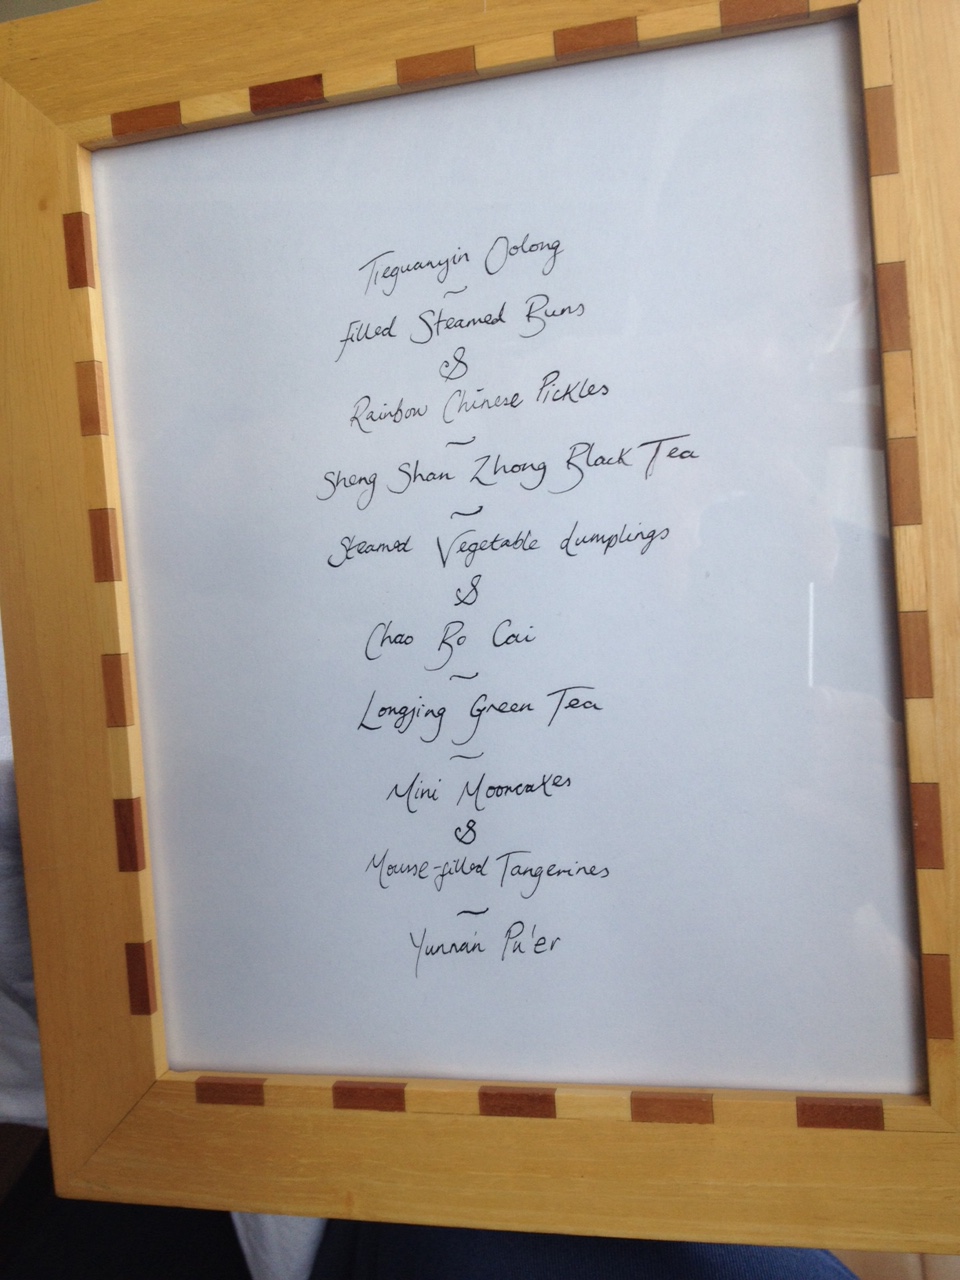 Tieguanyin Oolong
~
filled Steamed Buns
&
Rainbow Chinese Pickles
~
Sheng Shan Zhong Black Tea
~
Steamed Vegetable dumplings
&
Chao Bo Cai
~
Longjing Green Tea
~
Mini Mooncakes
&
Mousse-filled Tangerines
~
Yunnan Pu'er